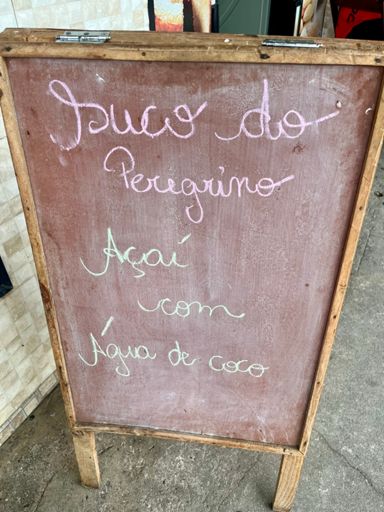 Suco do
Peregrino
Açaí
com
Água de coco